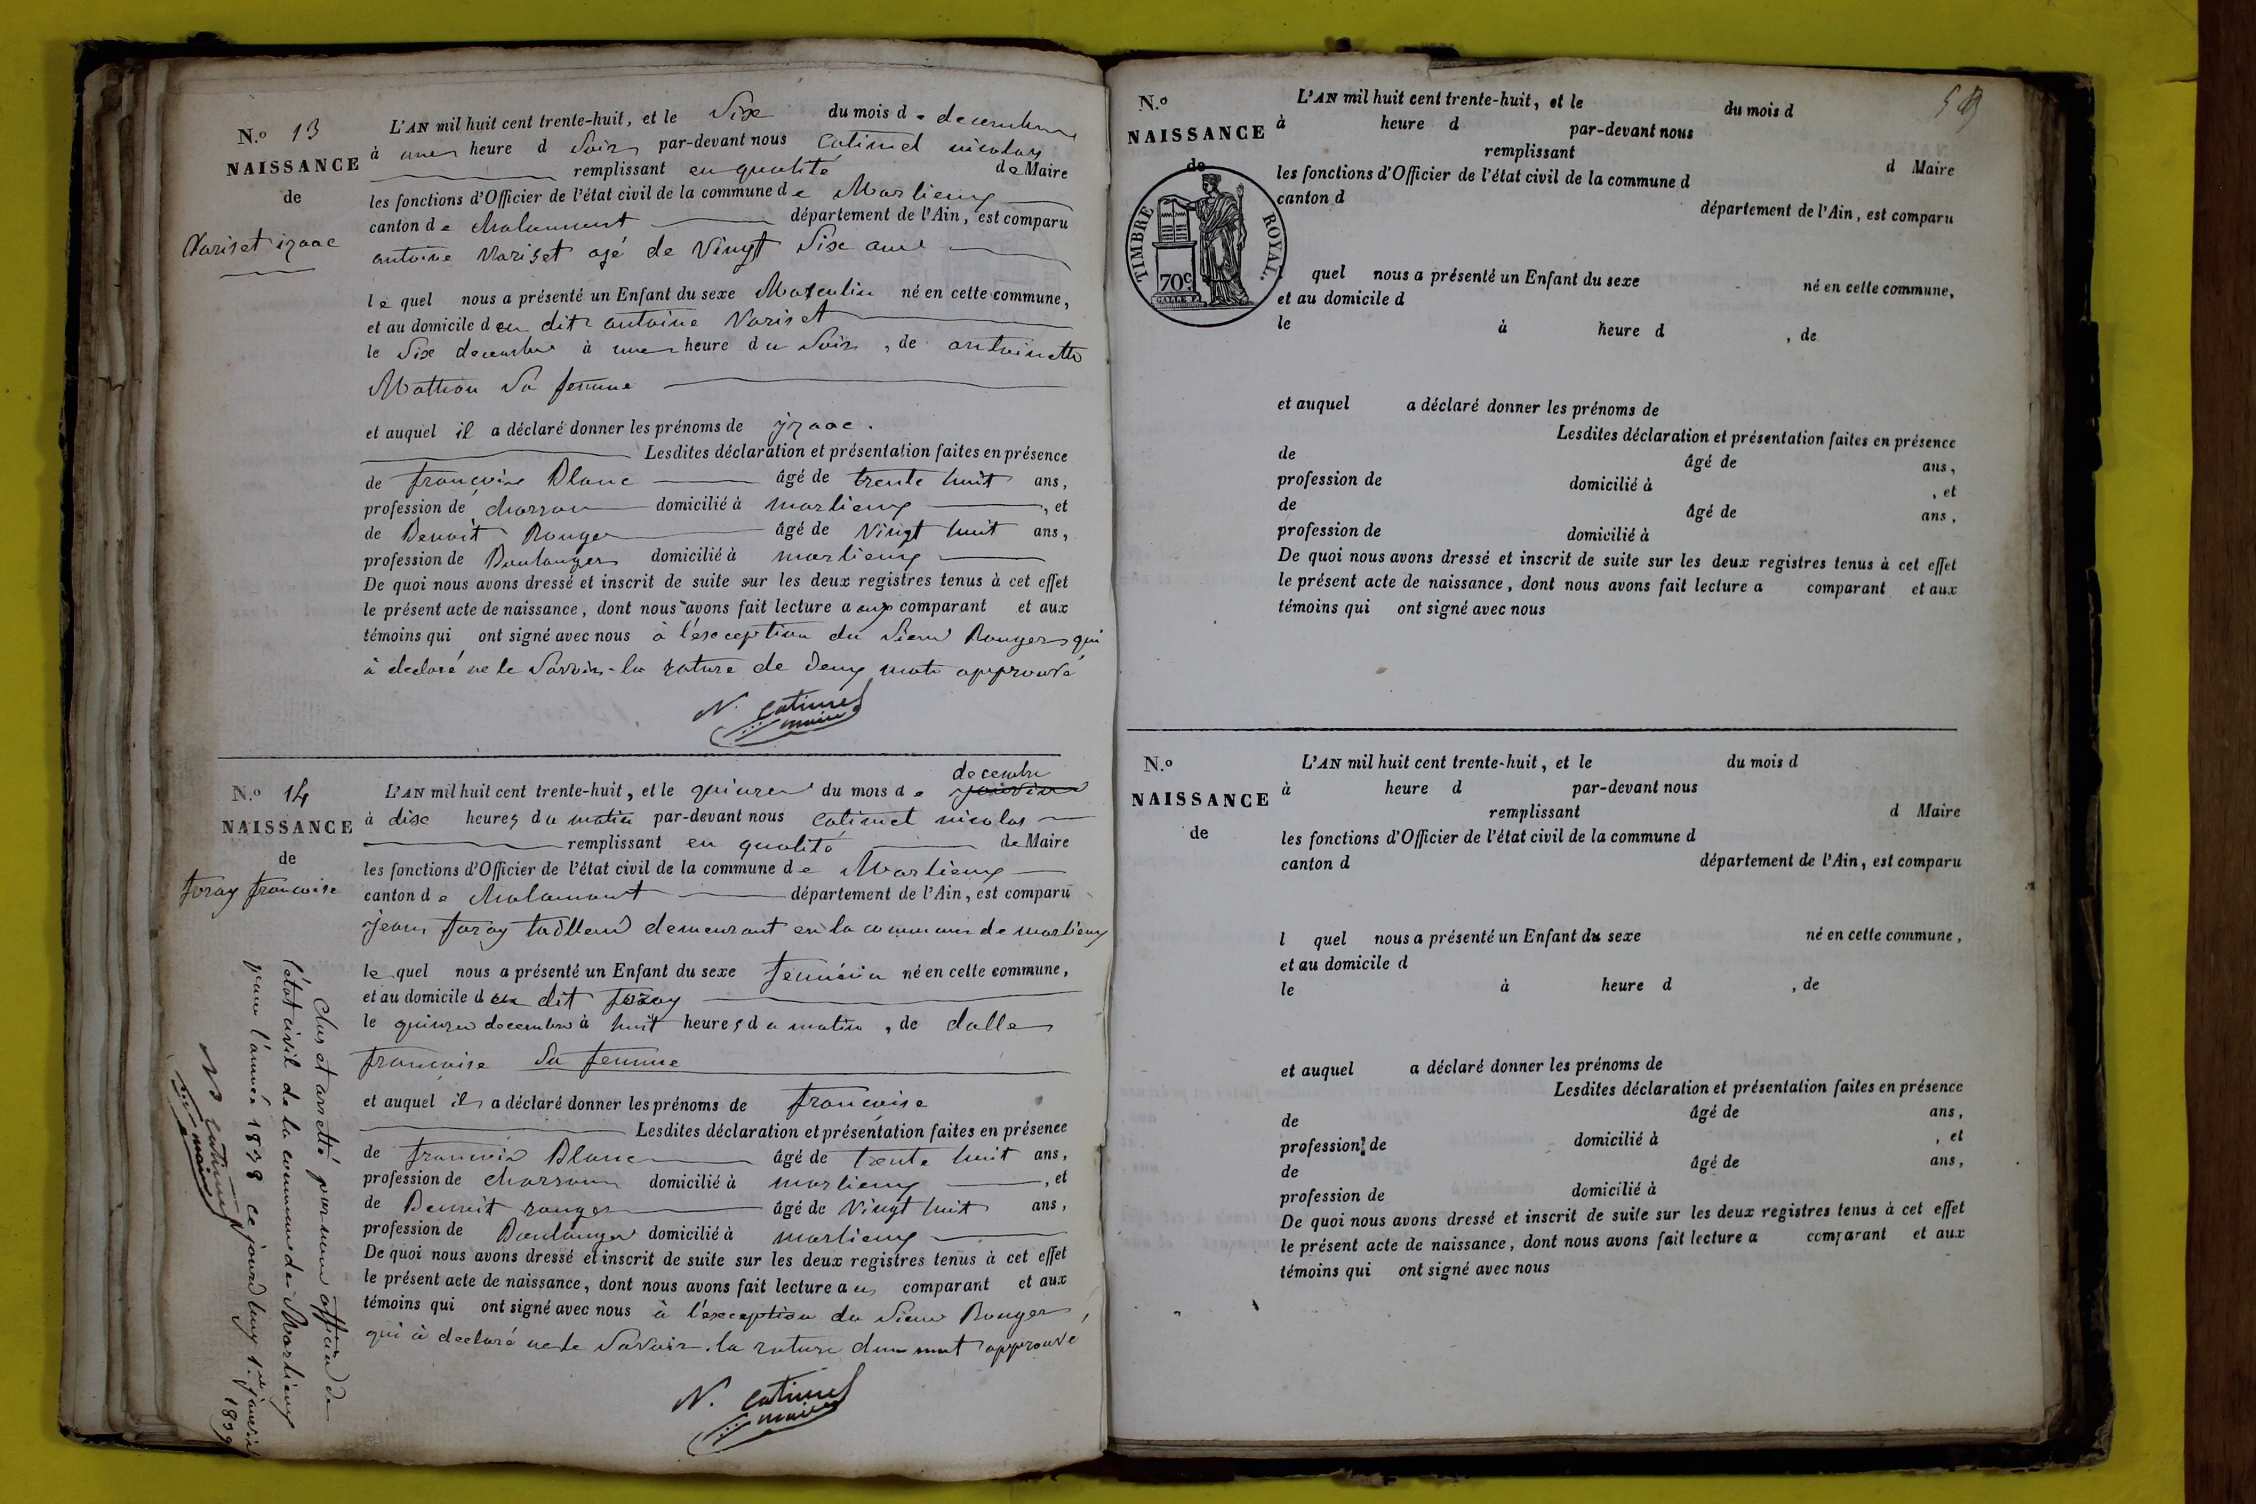 N.o 13
NAISSANCE
de
Variset izaac
L'AN mil huit cent trente-huit, et le Six du mois de decembre
à une heure d Soir par-devant nous Catimel nicolas
remplissant en qualité de Maire
les fonctions d'Officier de l'état civil de la commune de Marlieux
canton de chalamont département de l'Ain, est comparu
antoine Variset agé de Vingt Six ans
le quel nous a présenté un Enfant du sexe Masculin né en cette commune,
et au domicile du dit antoine Variset
le Six decembre à une heure du Soir, de antoinette
Mathon Sa femme
et auquel il a déclaré donner les prénoms de yzaac.
Lesdites déclaration et présentation faites en présence
de françois Blanc âgé de trente huit ans,
profession de charron domicilié à marlieux, et
de Benoit Rouger âgé de Vingt huit ans,
profession de Boulanger domicilié à marlieux
De quoi nous avons dressé et inscrit de suite sur les deux registres tenus à cet effet
le présent acte de naissance, dont nous avons fait lecture aux comparant et aux
témoins qui ont signé avec nous à l'exception du Sieur Rouger qui
à declaré ne le Savoir. la rature de deux mots approuvé
N. Catimel
maire
N.o 14
NAISSANCE
de
foray francoise
L'AN mil huit cent trente-huit, et le quinze du mois de decembre
à dix heures du matin par-devant nous Catimel nicolas
remplissant en qualité de Maire
les fonctions d'Officier de l'état civil de la commune de Marlieux
canton de chalamont département de l'Ain, est comparu
jean foray tailleur demeurant en la commune de marlieux
le quel nous a présenté un Enfant du sexe feminin né en cette commune,
et au domicile du dit foray
le quinze decembre à huit heures du matin, de dalle
francoise Sa femme
et auquel il a déclaré donner les prénoms de francoise
Lesdites déclaration et présentation faites en présence
de francois Blanc âgé de trente huit ans,
profession de charron domicilié à marlieux, et
de Benoit rouger âgé de Vingt huit ans,
profession de Boulanger domicilié à marlieux
De quoi nous avons dressé et inscrit de suite sur les deux registres tenus à cet effet
le présent acte de naissance, dont nous avons fait lecture au comparant et aux
témoins qui ont signé avec nous à l'exception du Sieur Rouger
qui à declaré ne le Savoir. la rature d'un mot approuvé
N. Catimel
maire
Clos et arretté par nous officier de
l'état civil de la commune de Marlieux
pour l'année 1838 ce jourd'huy 1er janvier 1839
N Catimel
maire
59
N.o
NAISSANCE
de
TIMBRE ROYAL.
70c
L'AN mil huit cent trente-huit, et le du mois d
à heure d par-devant nous
remplissant d Maire
les fonctions d'Officier de l'état civil de la commune d
canton d département de l'Ain, est comparu
quel nous a présenté un Enfant du sexe né en cette commune,
et au domicile d
le à heure d , de
et auquel a déclaré donner les prénoms de
Lesdites déclaration et présentation faites en présence
de âgé de ans,
profession de domicilié à , et
de âgé de ans,
profession de domicilié à
De quoi nous avons dressé et inscrit de suite sur les deux registres tenus à cet effet
le présent acte de naissance, dont nous avons fait lecture a comparant et aux
témoins qui ont signé avec nous
N.o
NAISSANCE
de
L'AN mil huit cent trente-huit, et le du mois d
à heure d par-devant nous
remplissant d Maire
les fonctions d'Officier de l'état civil de la commune d
canton d département de l'Ain, est comparu
l quel nous a présenté un Enfant du sexe né en cette commune,
et au domicile d
le à heure d , de
et auquel a déclaré donner les prénoms de
Lesdites déclaration et présentation faites en présence
de âgé de ans,
profession de domicilié à , et
de âgé de ans,
profession de domicilié à
De quoi nous avons dressé et inscrit de suite sur les deux registres tenus à cet effet
le présent acte de naissance, dont nous avons fait lecture a comparant et aux
témoins qui ont signé avec nous